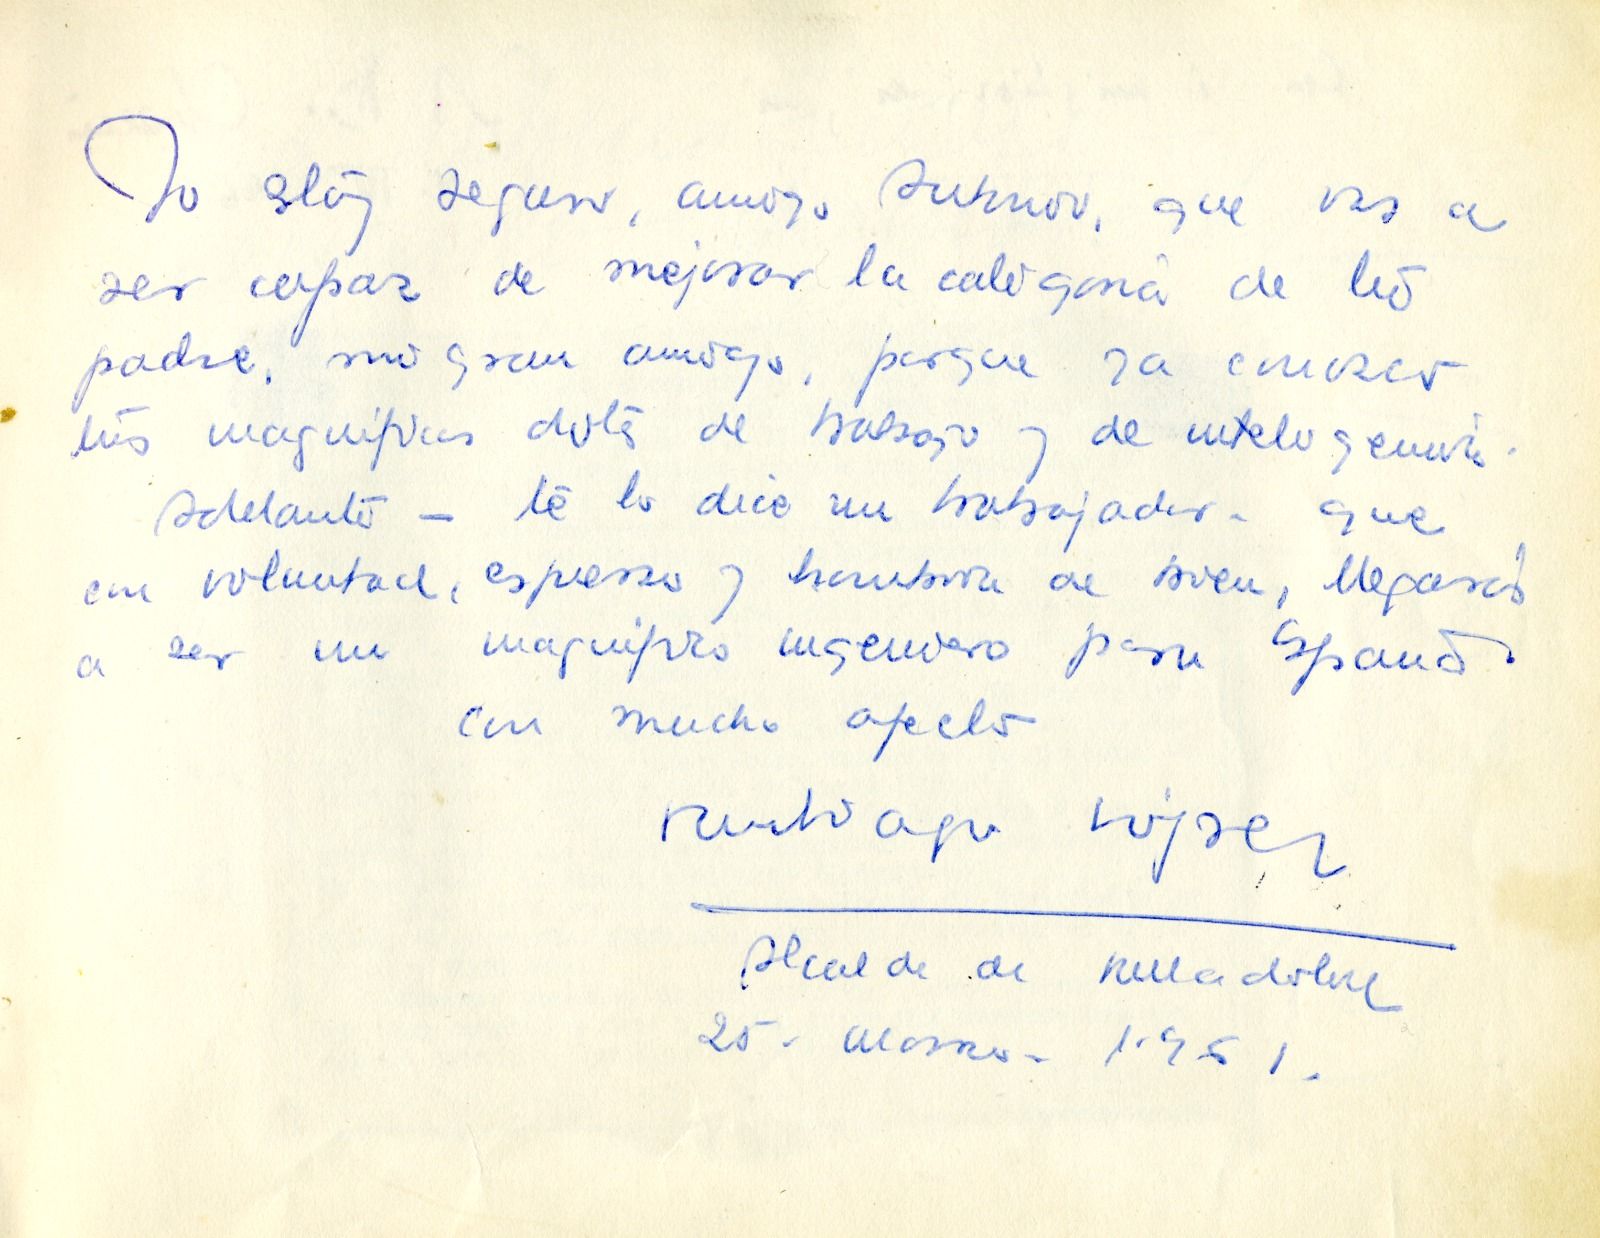 Yo estoy seguro, amigo Antonio, que vas a
ser capaz de mejorar la categoria de tu
padre, mi gran amigo, porque ya conozco
tus magnificas dotes de trabajo y de inteligencia.
Adelante - te lo dice un trabajador - que
con voluntad, esfuerzo y hombria de bien, llegarás
a ser un magnifico ingeniero para España.
Con mucho afecto
Santiago López
Alcalde de
25 - Marzo - 1.951.